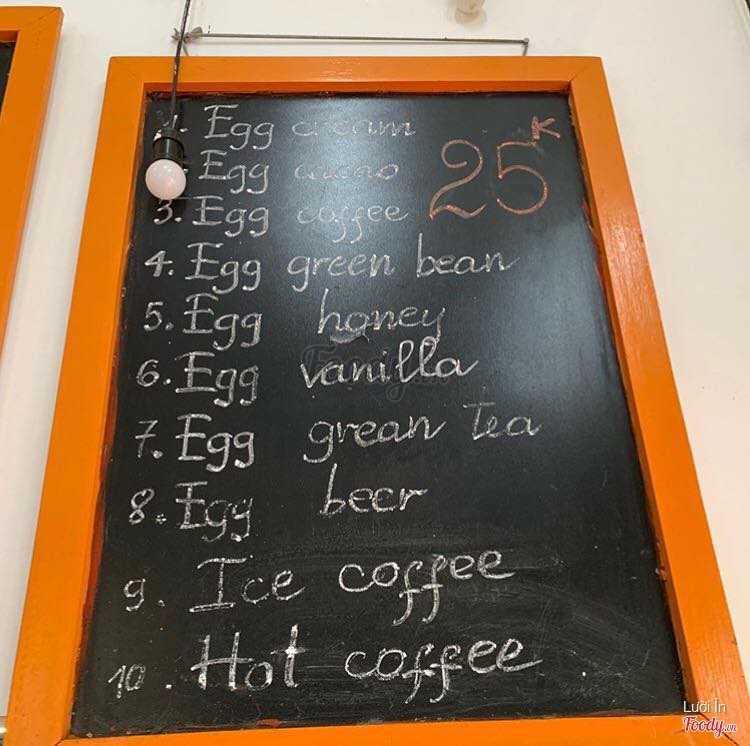 1. Egg cream
Egg cacao
25K
3. Egg coffee
4. Egg green bean
5. Egg honey
6. Egg vanilla
7. Egg grean Tea
8. Egg beer
9. Ice coffee
10. Hot coffee
Foody.vn
Lười Ín
Foody.vn